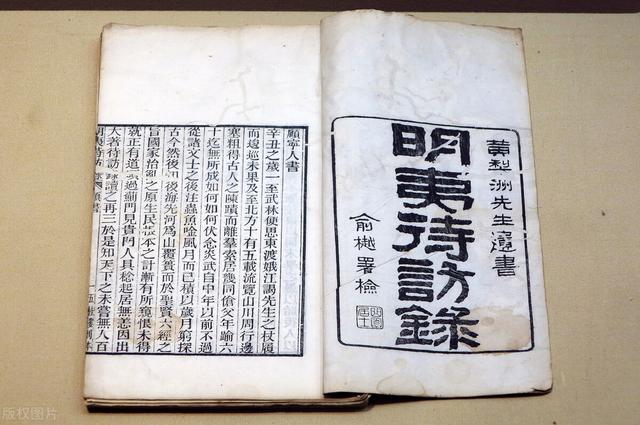 黃梨洲先生遺書
明夷待訪錄
俞樾署檢
顧寧人書
辛丑之歲一至武林便思東渡娥江謁先生之杖履
而逡巡未果及至北方十有五載流覽山川周行邊
塞粗得古人之陳蹟而離羣索居幾同傖父年踰六
十迄無所成如何如何伏念炎武自中年以前不過
從諸文士之後注蟲魚唫風月而已積以歲月窮探
古今然後後海先河爲山覆簣而於聖賢六經之
旨國家治之原生民根本之計漸有所窺恨未得
就正有道過薊門見貴門人具稔起居無恙因出
大著待訪讀之再三於是知天下之未嘗無人百
明夷待訪
版权图片